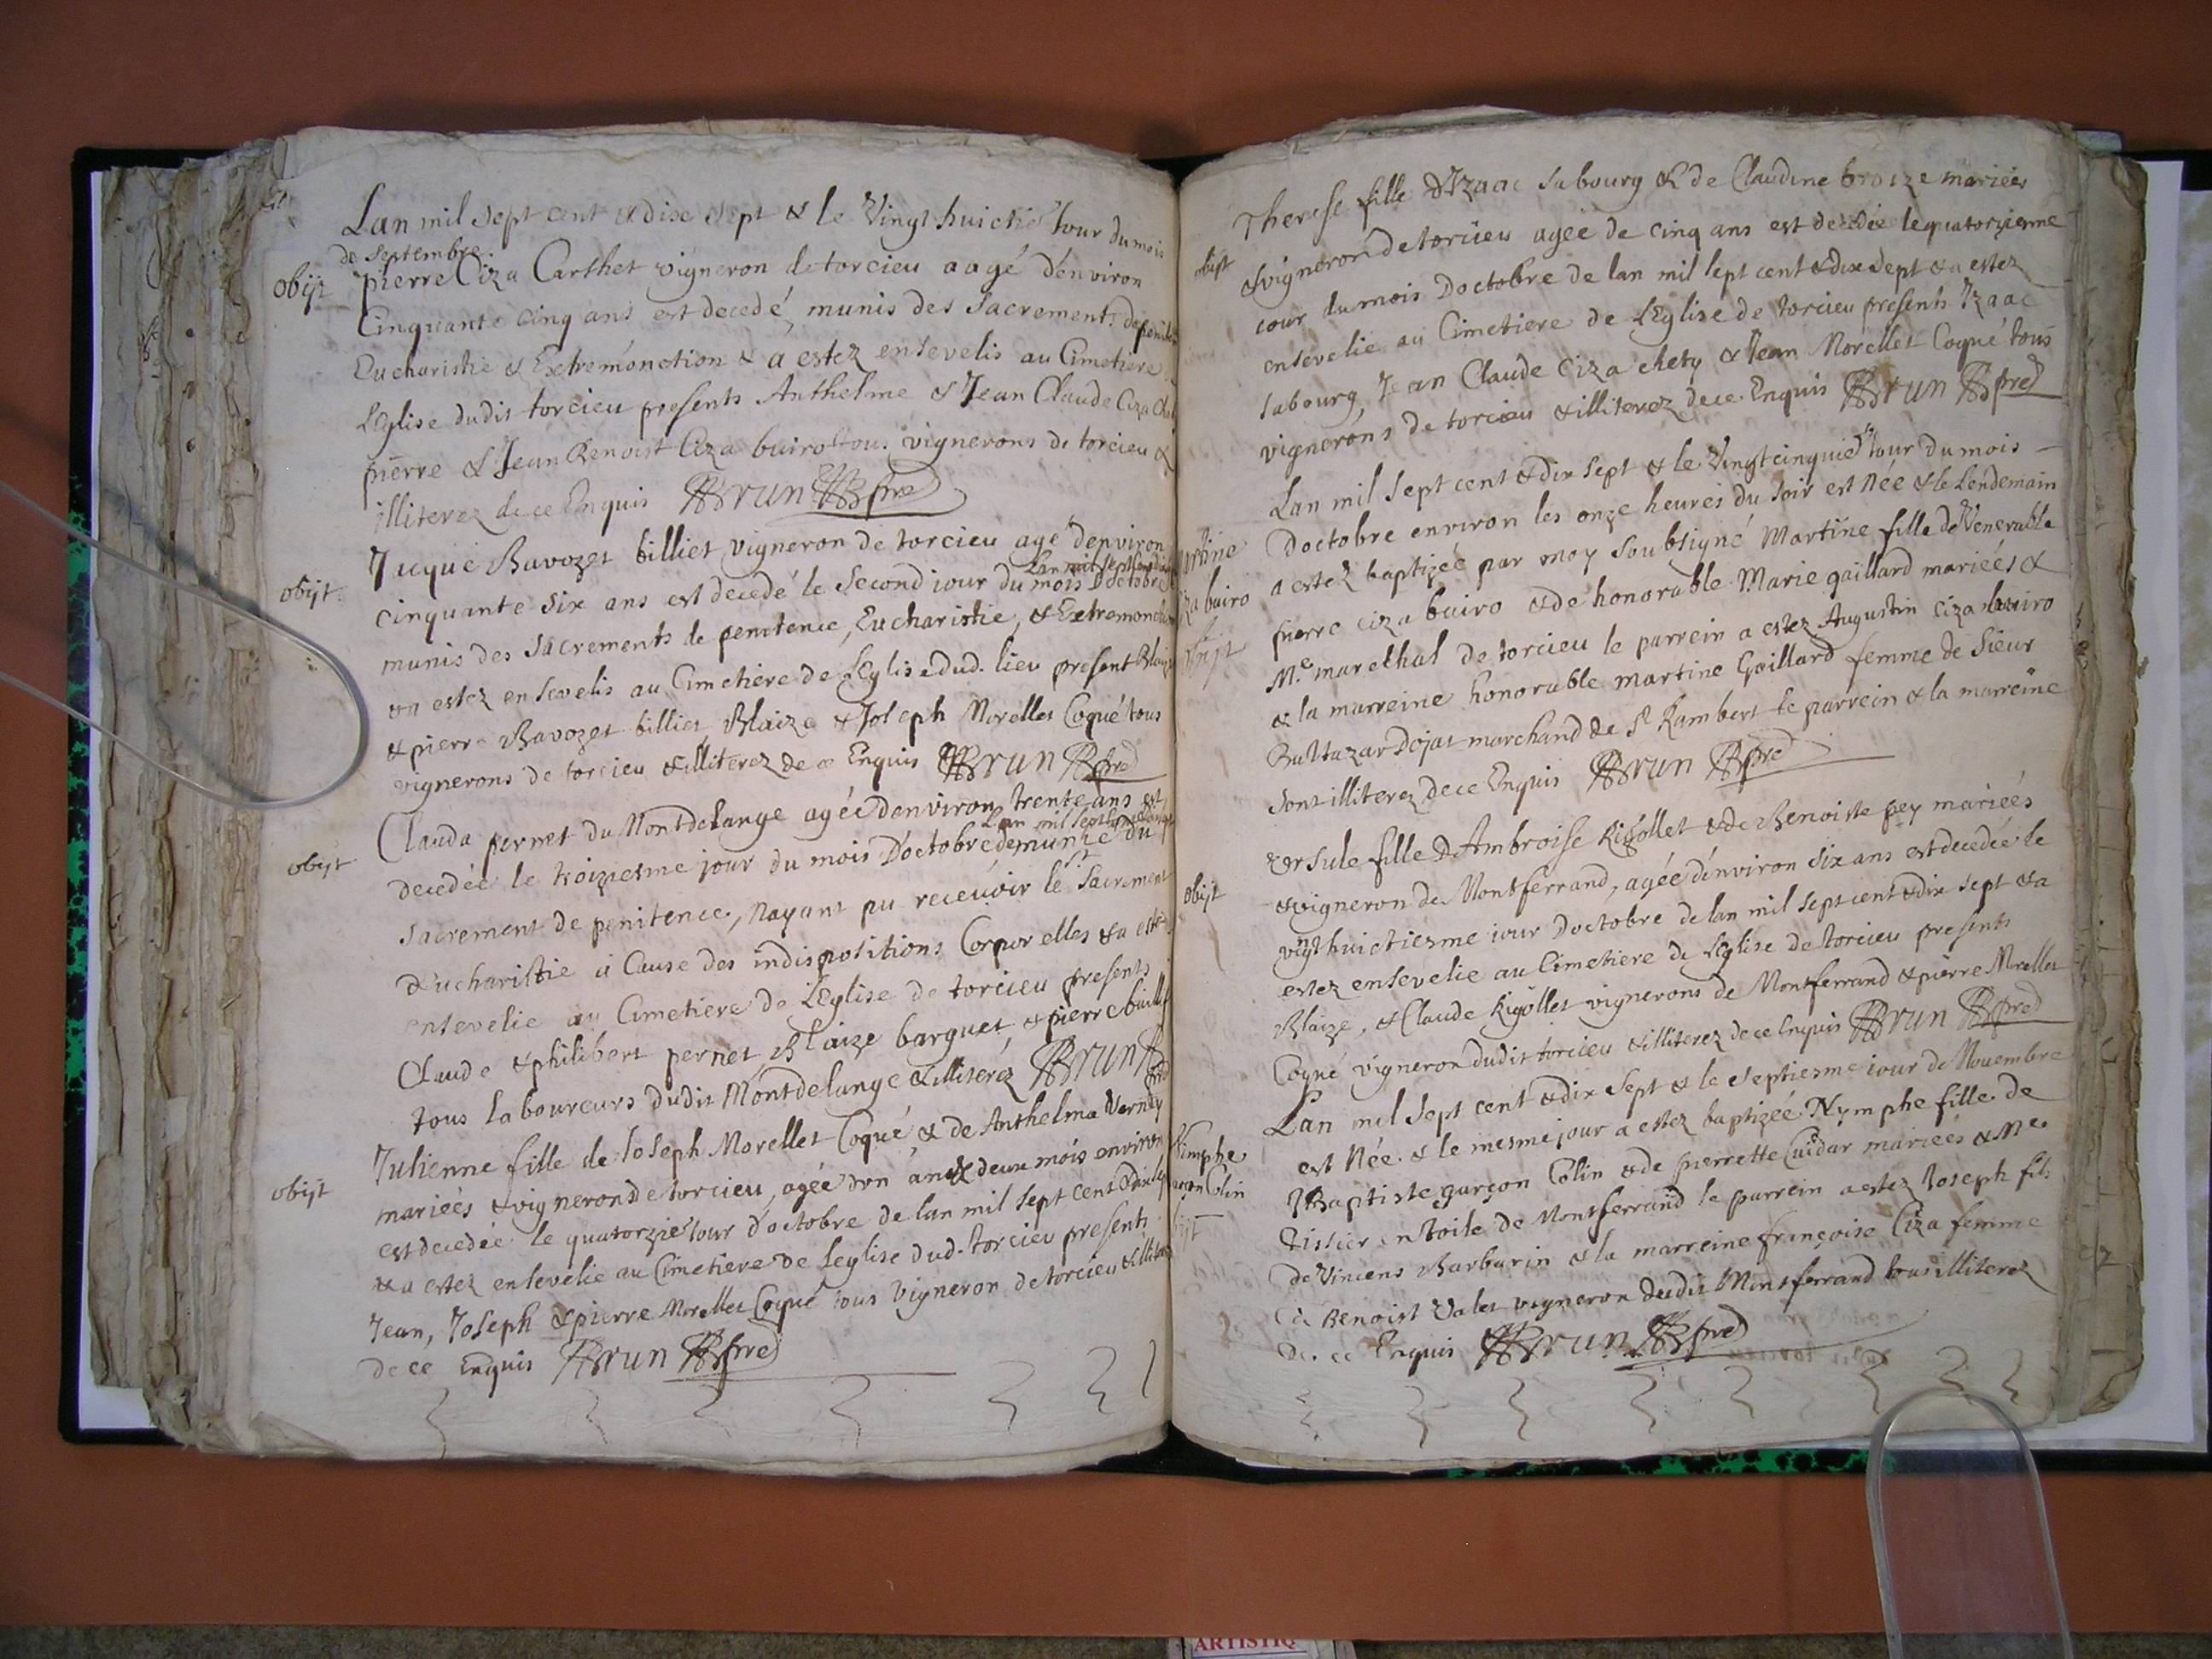 Lan mil Sept cent & dixe Sept & le Vingt huictie Iour du mois
de Septembre
obijt
pierre Ciza Carthet vigneron de torcieu aagé d'environ
Cinquante cinq ans est decedé, munis des Sacrements de
Eucharistie & Extremonction & a estez ensevelis au Cimetiere
LEglise dudit torcieu presents Anthelme & Jean Claude Ciza
pierre & Jean Benoist Ciza buiro tous vignerons de torcieu &
illiterez de ce Enquis Brun pre
Jacque Bavozet billiet vigneron de torcieu agé d'environ
Lan mil Sept
obijt
cinquante Six ans est decedé le Second iour du mois Doctobre
munis des Sacrements de penitence, Eucharistie, & Extremonction
& a estez ensevelis au Cimetiere de LEglise dud. lieu present Blaize
& pierre Bavozet billiet, Blaize & Joseph Morellet Coqué tous
vignerons de torcieu & illiterez de ce Enquis Brun pre
Clauda pernet du Montdelange agée denviron trente ans est
Lan mil Sept
obijt
decedée le troiziesme jour du mois D'octobre munie du
Sacrement de penitence, Nayant pu recevoir le St Sacrement
d'Eucharistie a Cause des indispositions Corporelles & a estez
ensevelie au Cimetiere de LEglise de torcieu presents
Claude & philibert pernet, Blaize barquet, & pierre
tous laboureurs dudit Montdelange & illiterez Brun pre
Julienne fille de Joseph Morellet Coqué & de Anthelma
obijt
mariées & vigneron de torcieu, agée d'vn an & deux mois environ
est decedée le quatorzie Iour d'octobre de lan mil Sept cent & dixsept
& a estez ensevelie au Cimetiere de Leglise dud. torcieu presents
Jean, Joseph & pierre Morellet Coqué tous Vigneron de torcieu & illiterez
de ce Enquis Brun pre
Therese fille d'Izaac Sabourg & de Claudine broize mariées
obijt
& vigneron de torcieu agée de cinq ans est decedée le quatorzieme
iour du mois Doctobre de lan mil Sept cent & dix Sept & a estez
ensevelie au Cimetiere de LEglise de torcieu presents Izaac
Sabourg, Jean Claude Ciza chety & Jean Morellet Coqué tous
vignerons de torcieu & illiterez de ce Enquis Brun pre
Lan mil Sept cent & dix Sept & le Vingt cinquie Iour du mois
Doctobre environ les onze heures du Soir est Née & le Lendemain
a estez baptizée par moy Soubsigné Martine fille de Venerable
buiro
pierre ciza buiro & de honorable Marie gaillard mariées &
obijt
Me marechal de torcieu le parrein a estez Augustin Ciza buiro
& la marreine honorable martine Gaillard femme de Sieur
Baltazar Dojat marchand de St Rambert le parrein & la marreine
Sont illiterez de ce Enquis Brun pre
Vrsule fille D'Ambroise Rigollet & de Benoiste pey mariées
obijt
& vigneron de Montferrand, agée d'environ Six ans est decedée le
vingt huictiesme iour Doctobre de lan mil Sept cent & dix Sept & a
estez ensevelie au Cimetiere de LEglise de torcieu presents
Blaize, & Claude Rigollet vignerons de Montferrand & pierre Morellet
Coqué vigneron dudit torcieu & illiterez de ce Enquis Brun pre
Lan mil Sept cent & dix Sept & le Septiesme iour de Nouembre
Nimphe
est Née & le mesme jour a estez baptizée Nymphe fille de
garçon Colin
JBaptiste garçon Colin & de pierrette Cuidar mariées & Me
Tissier en toile de Montferrand le parrein a estez Joseph fils
de Vincens Barbarin & la marreine françoise Ciza femme
à Benoist Valet vigneron dudit Montferrand tous illiterez
de ce Enquis Brun pre
ARTISTIQ